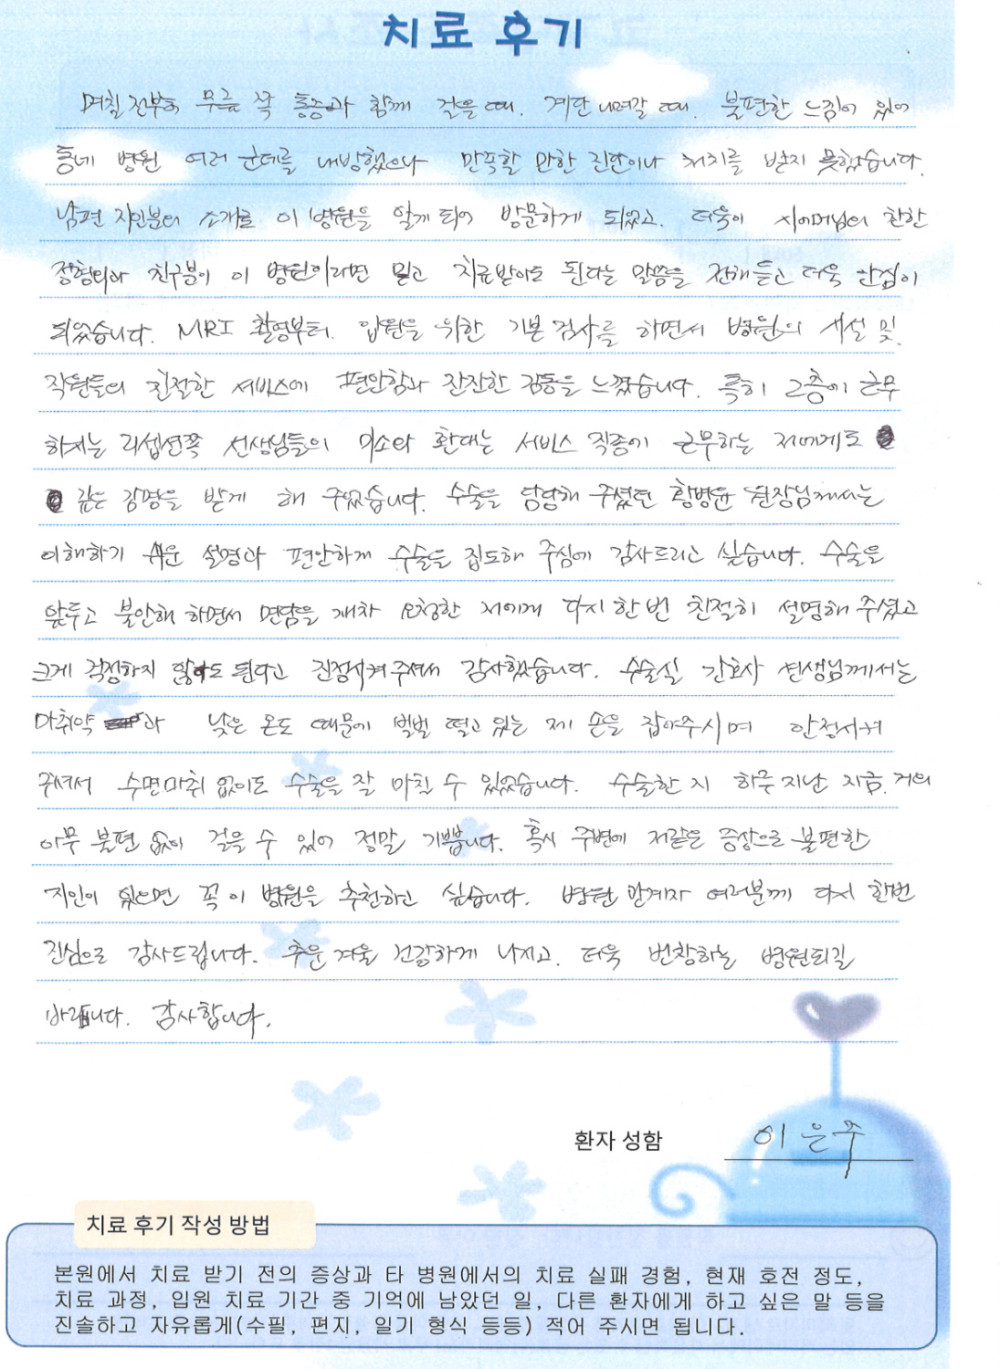 치료 후기
며칠 전부터 무릎 쪽 통증과 함께 걸을 때. 계단 내려갈 때. 불편한 느낌이 있어
동네 병원 여러 군데를 내방했으나 만족할 만한 진단이나 처치를 받지 못했습니다.
남편 지인분의 소개로 이 병원을 알게 되어 방문하게 되었고. 더욱이 시어머님의 친한
정형외과 친구분이 이 병원이라면 믿고 치료받아도 된다는 말씀을 전해듣고 더욱 안심이
되었습니다. MRI 촬영부터. 입원을 위한 기본 검사를 하면서 병원의 시설 및.
직원들의 친절한 서비스에 편안함과 잔잔한 감동을 느꼈습니다. 특히 2층에 근무
하시는 리셉션쪽 선생님들의 미소와 환대는 서비스 직종에 근무하는 저에게도
깊은 감명을 받게 해 주었습니다. 수술을 담당해 주셨던 황병윤 원장님께서는
이해하기 쉬운 설명과 편안하게 수술을 집도해 주심에 감사드리고 싶습니다. 수술을
앞두고 불안해 하면서 면담을 재차 요청한 저에게 다시 한번 친절히 설명해 주셨고
크게 걱정하지 않아도 된다고 진정시켜 주셔서 감사했습니다. 수술실 간호사 선생님께서는
마취약과 낮은 온도 때문에 벌벌 떨고 있는 제 손을 잡아주시며 안정시켜
주셔서 수면마취 없이도 수술을 잘 마칠 수 있었습니다. 수술한 지 하루 지난 지금. 거의
아무 불편 없이 걸을 수 있어 정말 기쁩니다. 혹시 주변에 저같은 증상으로 불편한
지인이 있으면 꼭 이 병원을 추천하고 싶습니다. 병원 관계자 여러분께 다시 한번
진심으로 감사드립니다. 추운 겨울 건강하게 나시고. 더욱 번창하는 병원되길
바랍니다. 감사합니다.
환자 성함 이은주
치료 후기 작성 방법
본원에서 치료 받기 전의 증상과 타 병원에서의 치료 실패 경험, 현재 호전 정도,
치료 과정, 입원 치료 기간 중 기억에 남았던 일, 다른 환자에게 하고 싶은 말 등을
진솔하고 자유롭게(수필, 편지, 일기 형식 등등) 적어 주시면 됩니다.